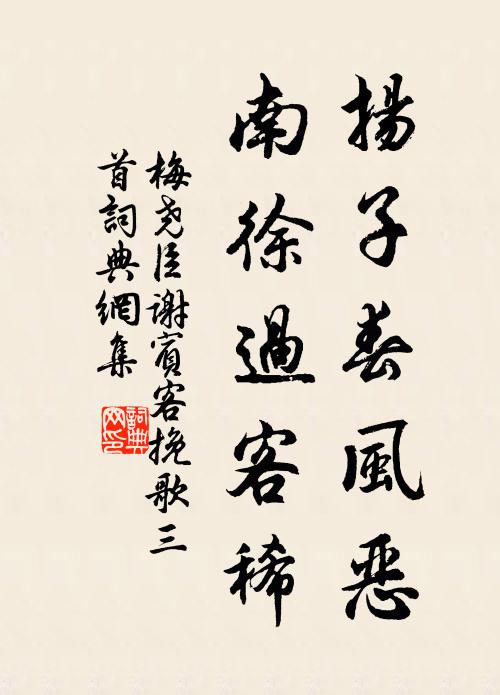 揚子春風惡
南徐過客稀
梅堯臣謝賓客挽歌三
首詞典網集
詞典
网印